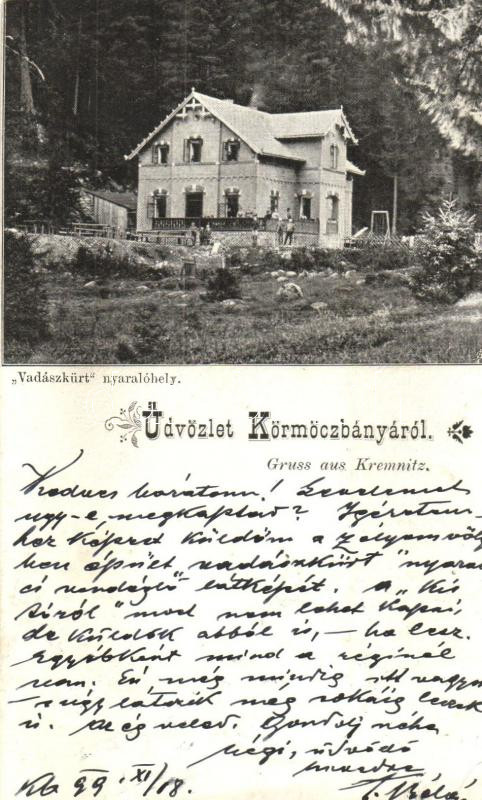 „Vadászkürt" nyaralóhely.
Üdvözlet Körmöczbányáról.
Gruss aus Kremnitz.
Kedves barátom! Levelemet
ugy-e megkaptad? Igéretem-
hez képest küldöm a zólyomvölgy
ben épült „vadászkürt" nyara
ci vendéglő látképét. A „Kis
" mod nem lehet kapni,
de küldök abból is, – ha lesz.
Egyébként mind a réginél
van. Én még mindig itt vagyok
– s úgy látszik még sokáig leszek
is. Az ég veled. Gondolj néha
régi, üdvözlő
Kb 99. XI/18.
Béla